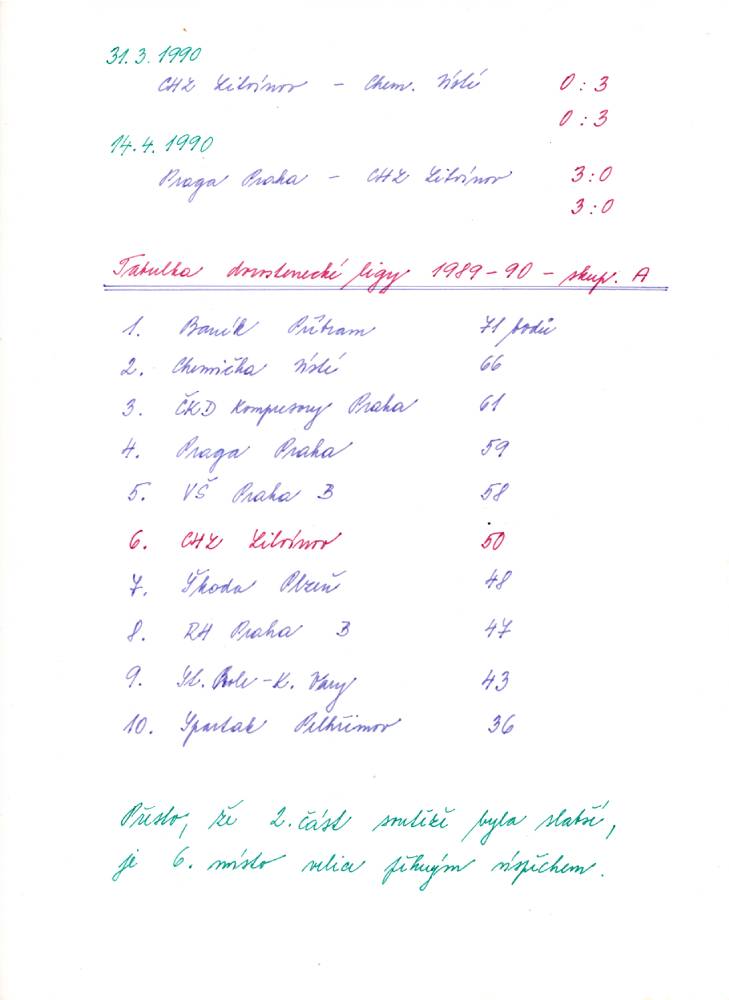 31.3.1990
CHZ Litvínov - Chem. Ústí 0:3
0:3
14.4.1990
Praga Praha - CHZ Litvínov 3:0
3:0
Tabulka dorostenecké ligy 1989-90 - skup. A
1. Baník Příbram 71 bodů
2. Chemička Ústí 66
3. ČKD Kompresory Praha 61
4. Praga Praha 59
5. VŠ Praha B 58
6. CHZ Litvínov 50
7. Škoda Plzeň 48
8. RH Praha B 47
9. St. Role - K. Vary 43
10. Spartak Pelhřimov 36
Přesto, že 2. část soutěže byla slabší,
je 6. místo velice pěkným úspěchem.